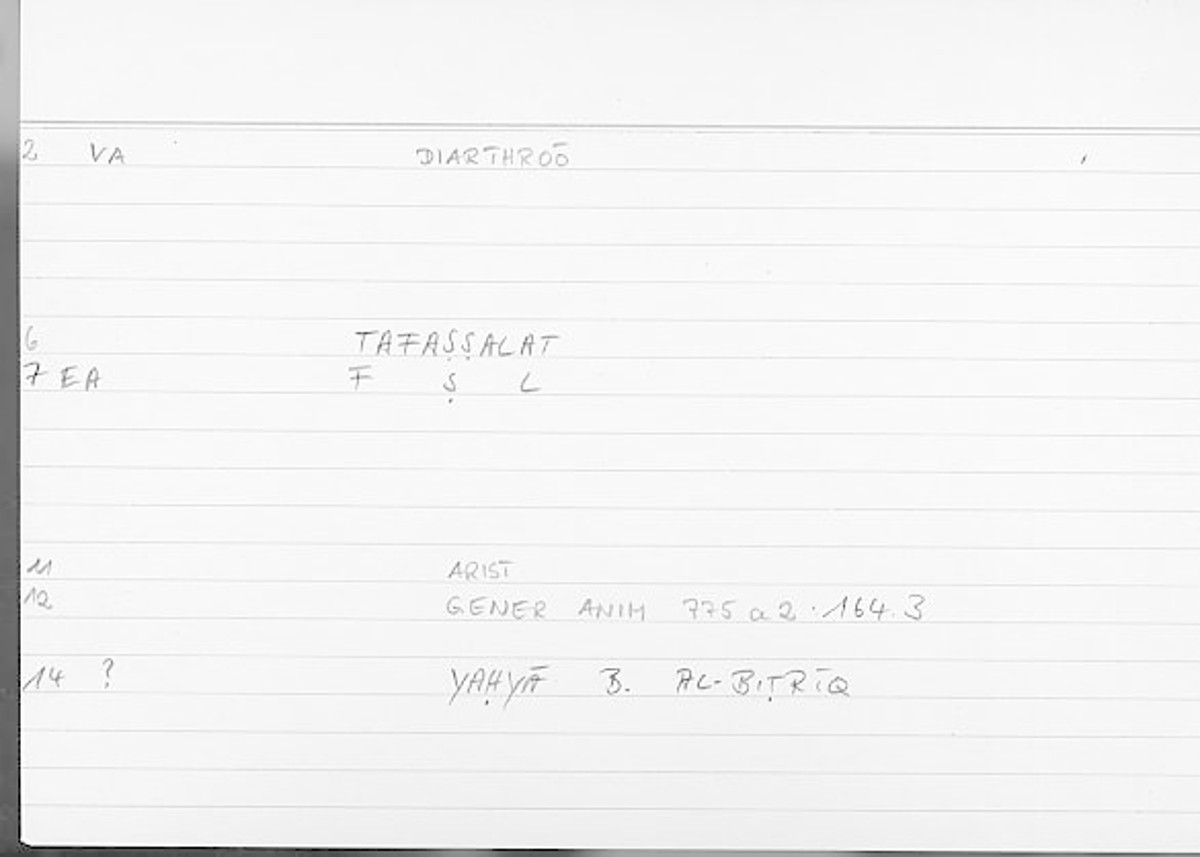 2 VA DIARTHROŌ
6 TAFAṢṢALAT
7 EA F Ṣ L
11 ARIST
12 GENER ANIM 775 a 2 · 164.3
14 ? YAḤYĀ B. AL-BIṬRĪQ